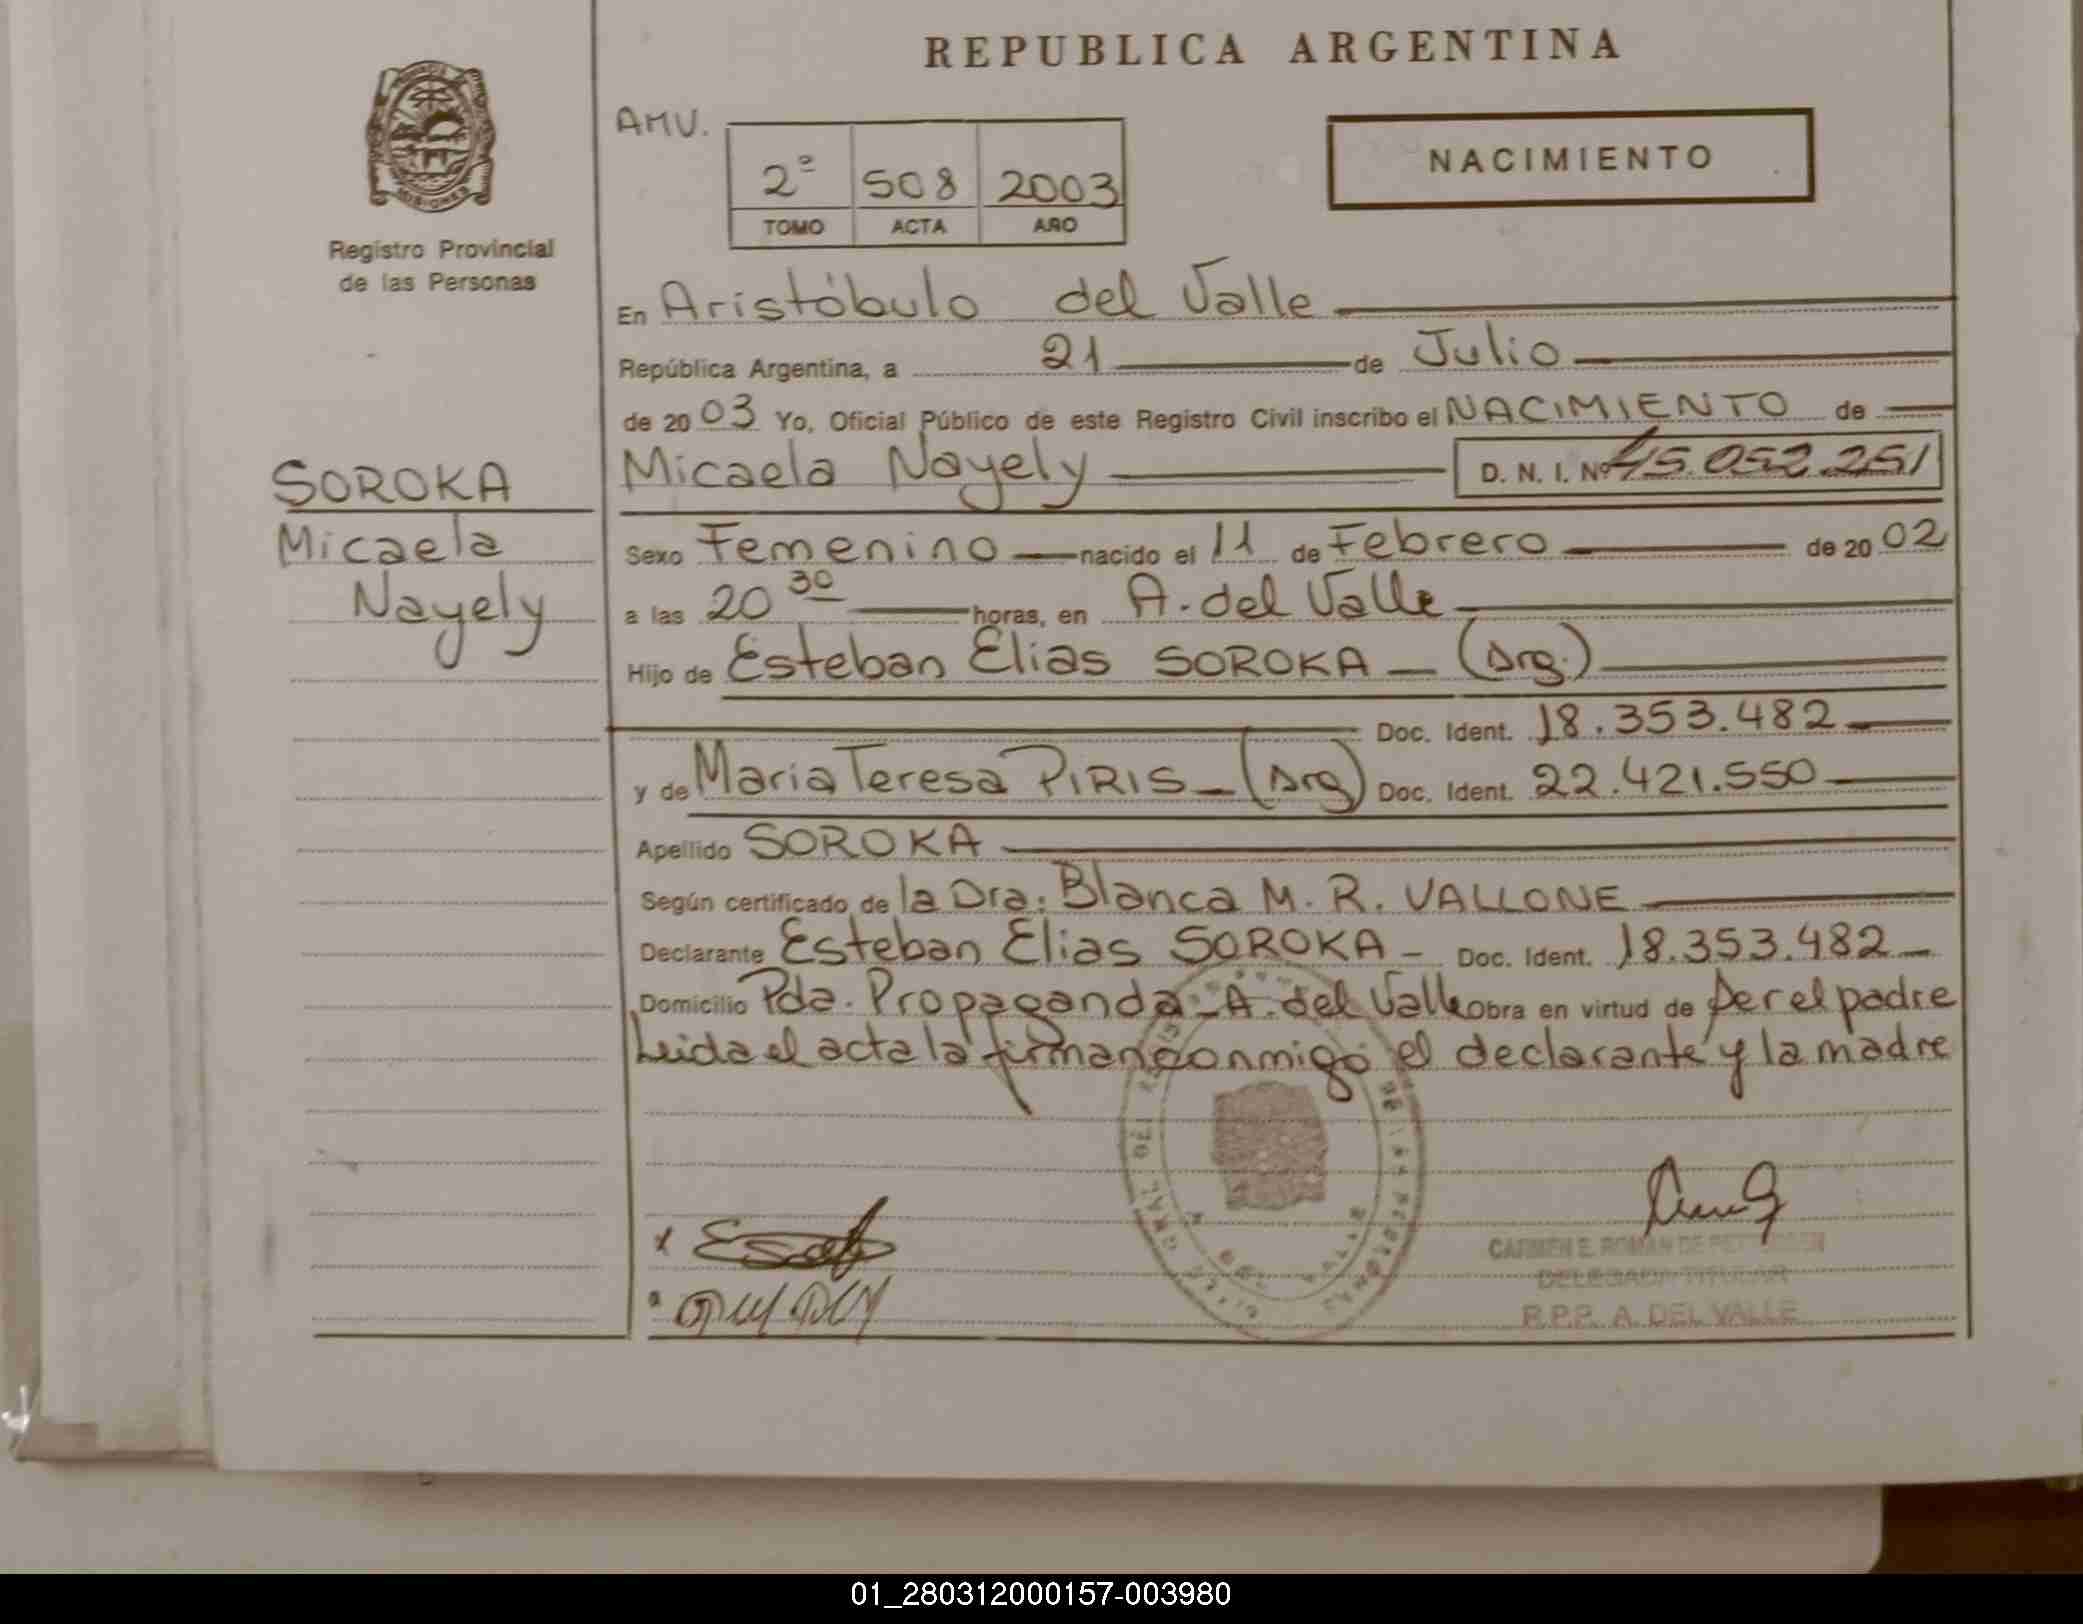 REPUBLICA ARGENTINA
AMV.
NACIMIENTO
2º 508 2003
TOMO ACTA AÑO
MISIONES
Registro Provincial
de las Personas
En Aristóbulo del Valle
República Argentina, a 21 de Julio
de 2003 Yo, Oficial Público de este Registro Civil inscribo el NACIMIENTO de
SOROKA
Micaela
Nayely
Micaela Nayely D. N. I. Nº 45.052.251
Sexo Femenino nacido el 11 de Febrero de 2002
a las 20 30 horas, en A. del Valle
Hijo de Esteban Elias SOROKA - (Arg.)
Doc. Ident. 18.353.482
y de Maria Teresa PIRIS - (Arg) Doc. Ident. 22.421.550
Apellido SOROKA
Según certificado de la Dra. Blanca M. R. VALLONE
Declarante Esteban Elias SOROKA - Doc. Ident. 18.353.482
Domicilio Pda. Propaganda - A. del Valle obra en virtud de ser el padre
Leida el acta la firman conmigo el declarante y la madre
CARMEN E. ROMAN DE
DELEGADA TITULAR
R.P.P. A. DEL VALLE
01_280312000157-003980